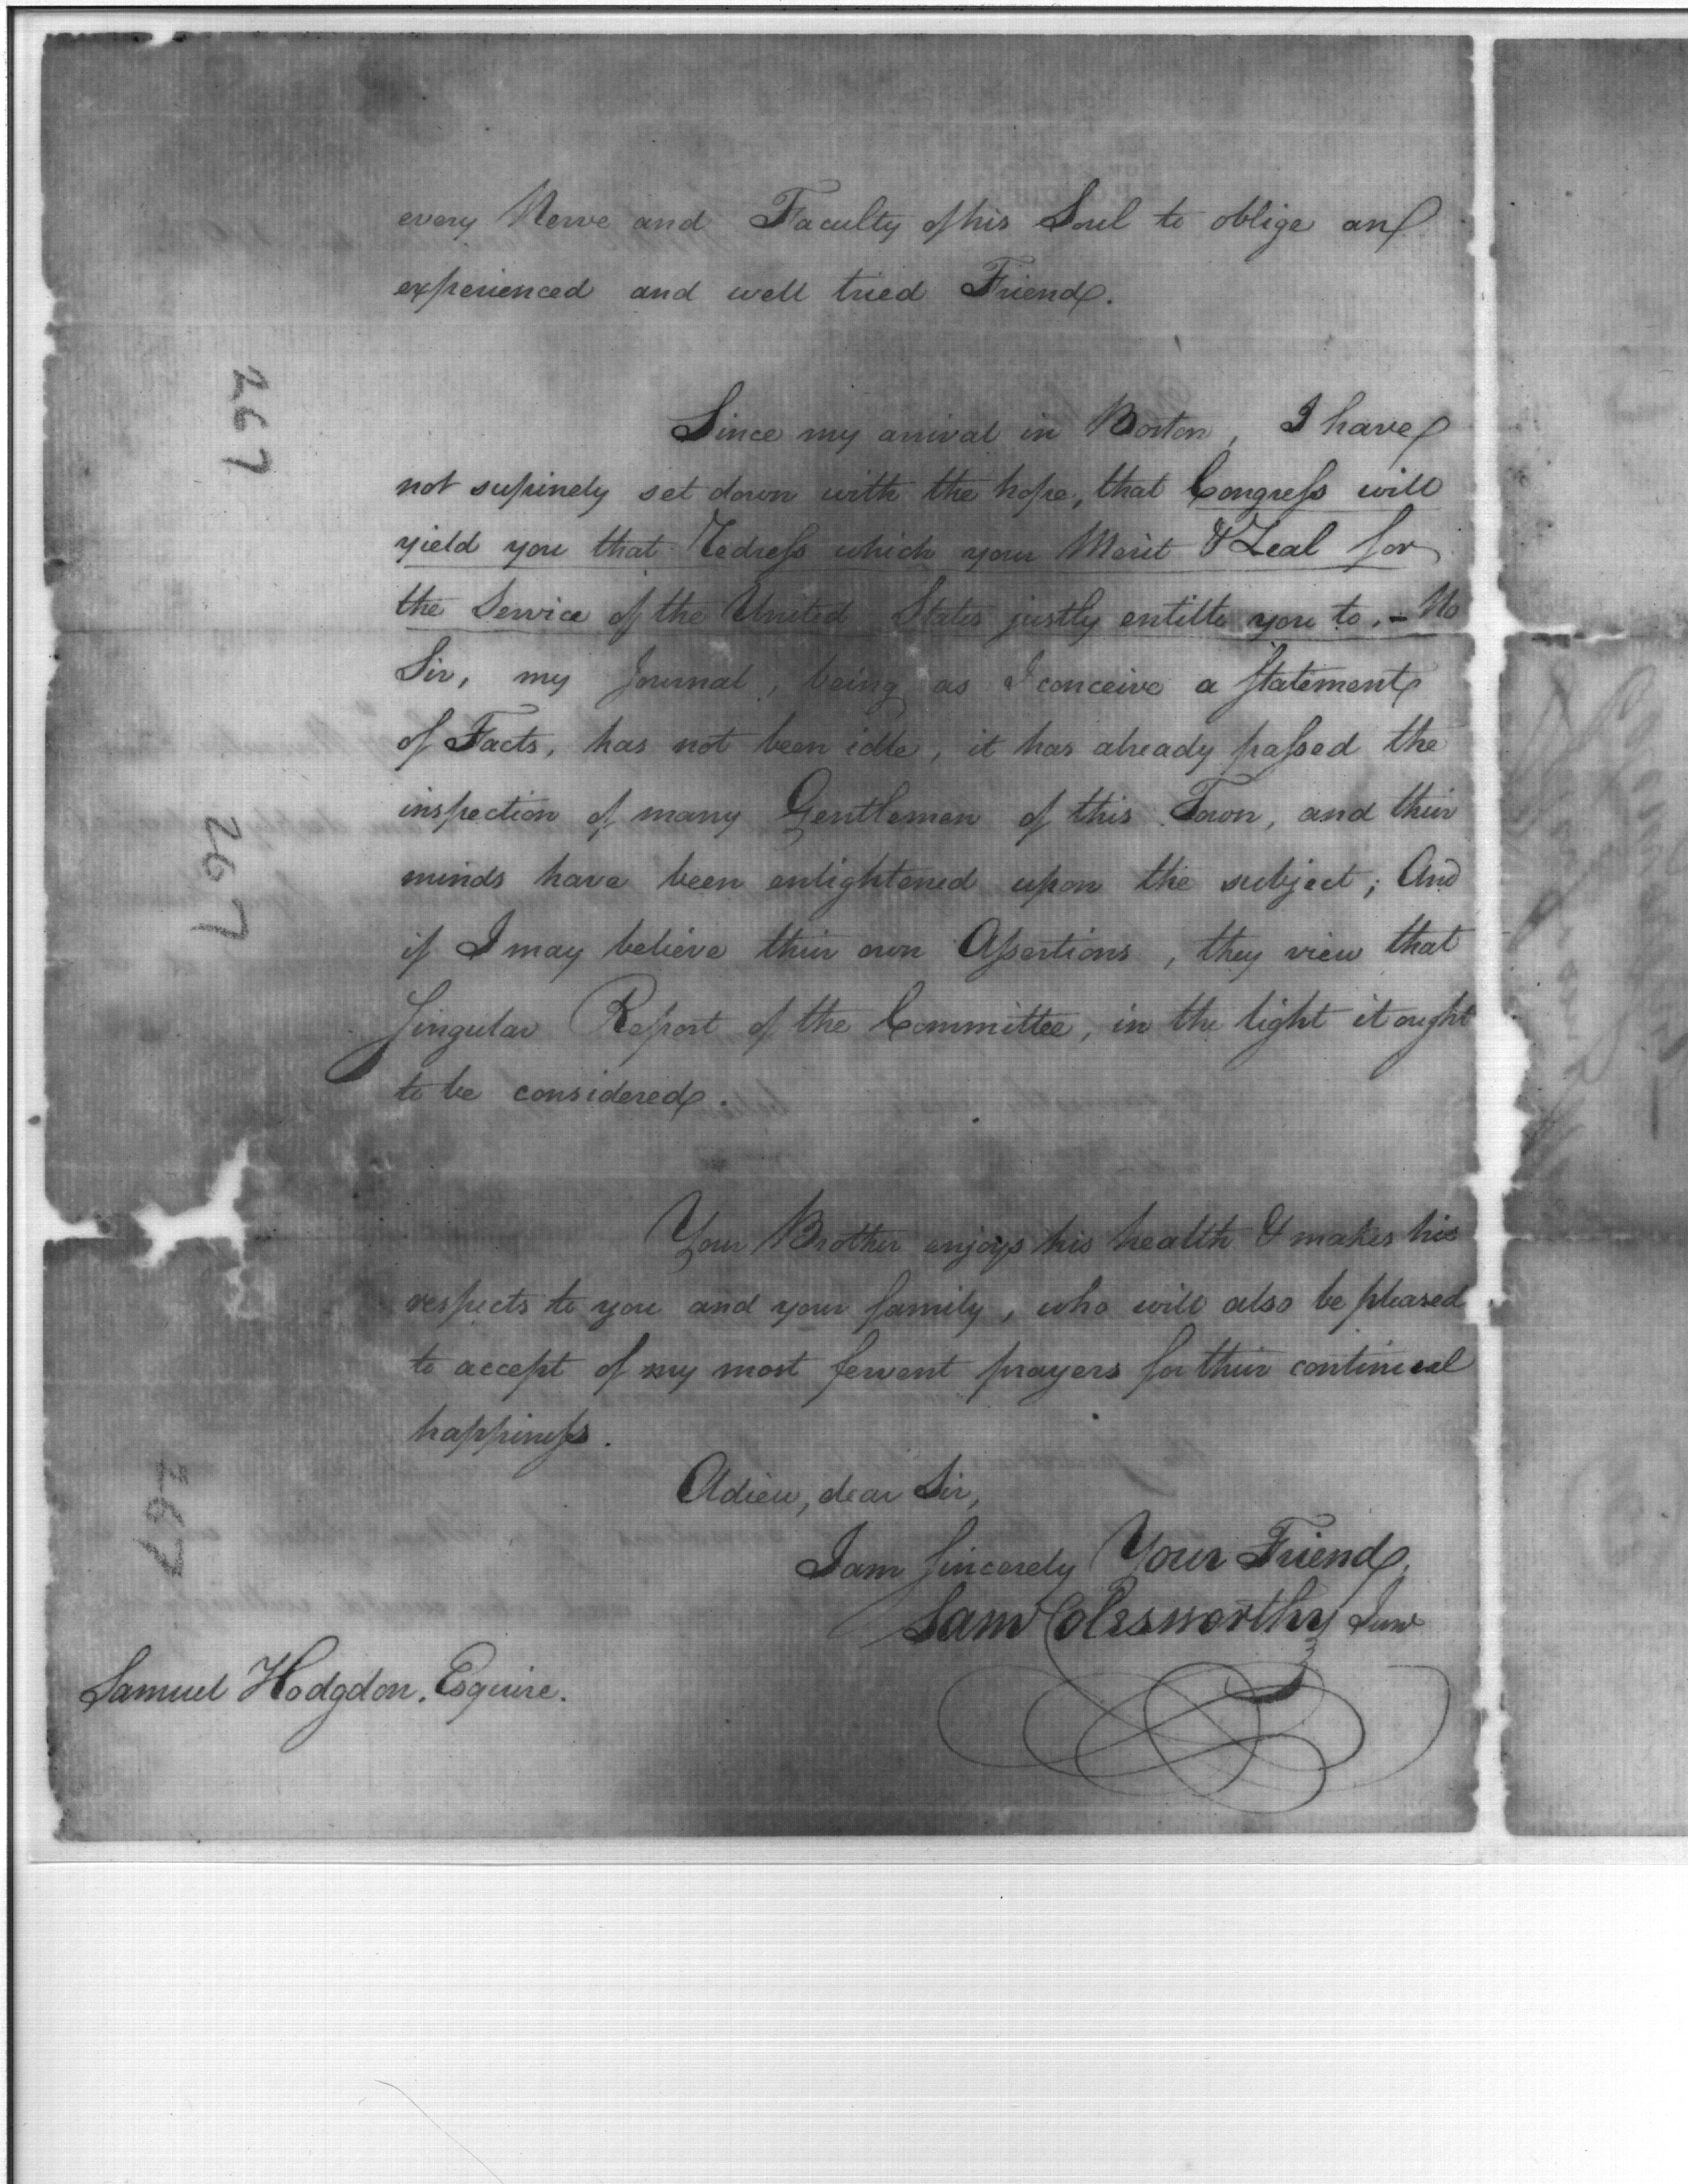 every Nerve and Faculty of his Soul to oblige an
experienced and well tried Friend.
Since my arrival in Boston, I have
not supinely set down with the hope, that Congress will
yield you that Redress which your Merit & Zeal for
the Service of the United States justly entitle you to. - No
Sir, my Journal, being as I conceive a Statement
of Facts, has not been idle, it has already passed the
inspection of many Gentlemen of this Town, and their
minds have been enlightened upon the subject; And
if I may believe their own Assertions, they view that
Singular Report of the Committee, in the light it ought
to be considered.
Your Brother enjoys his health & makes his
respects to you and your family, who will also be pleased
to accept of my most fervent prayers for their continual
happiness.
Adieu, dear Sir,
I am Sincerely Your Friend,
Sam Colesworthy Junr
Samuel Hodgdon, Esquire.
267
267
267